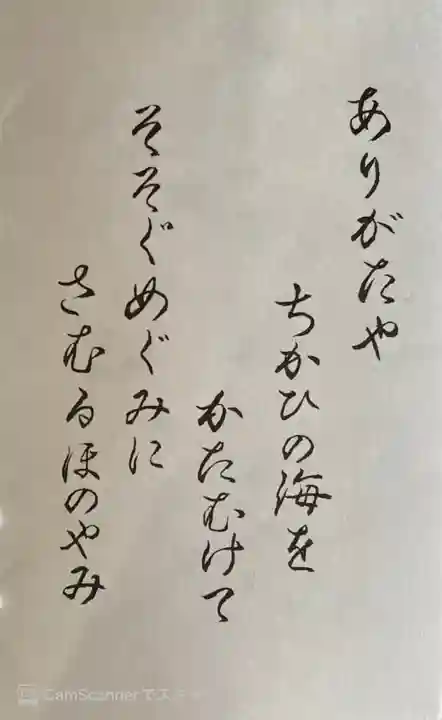 ありがたや
ちかひの海を
かたむけて
そそぐめぐみに
さむるほのやみ
CamScannerでス